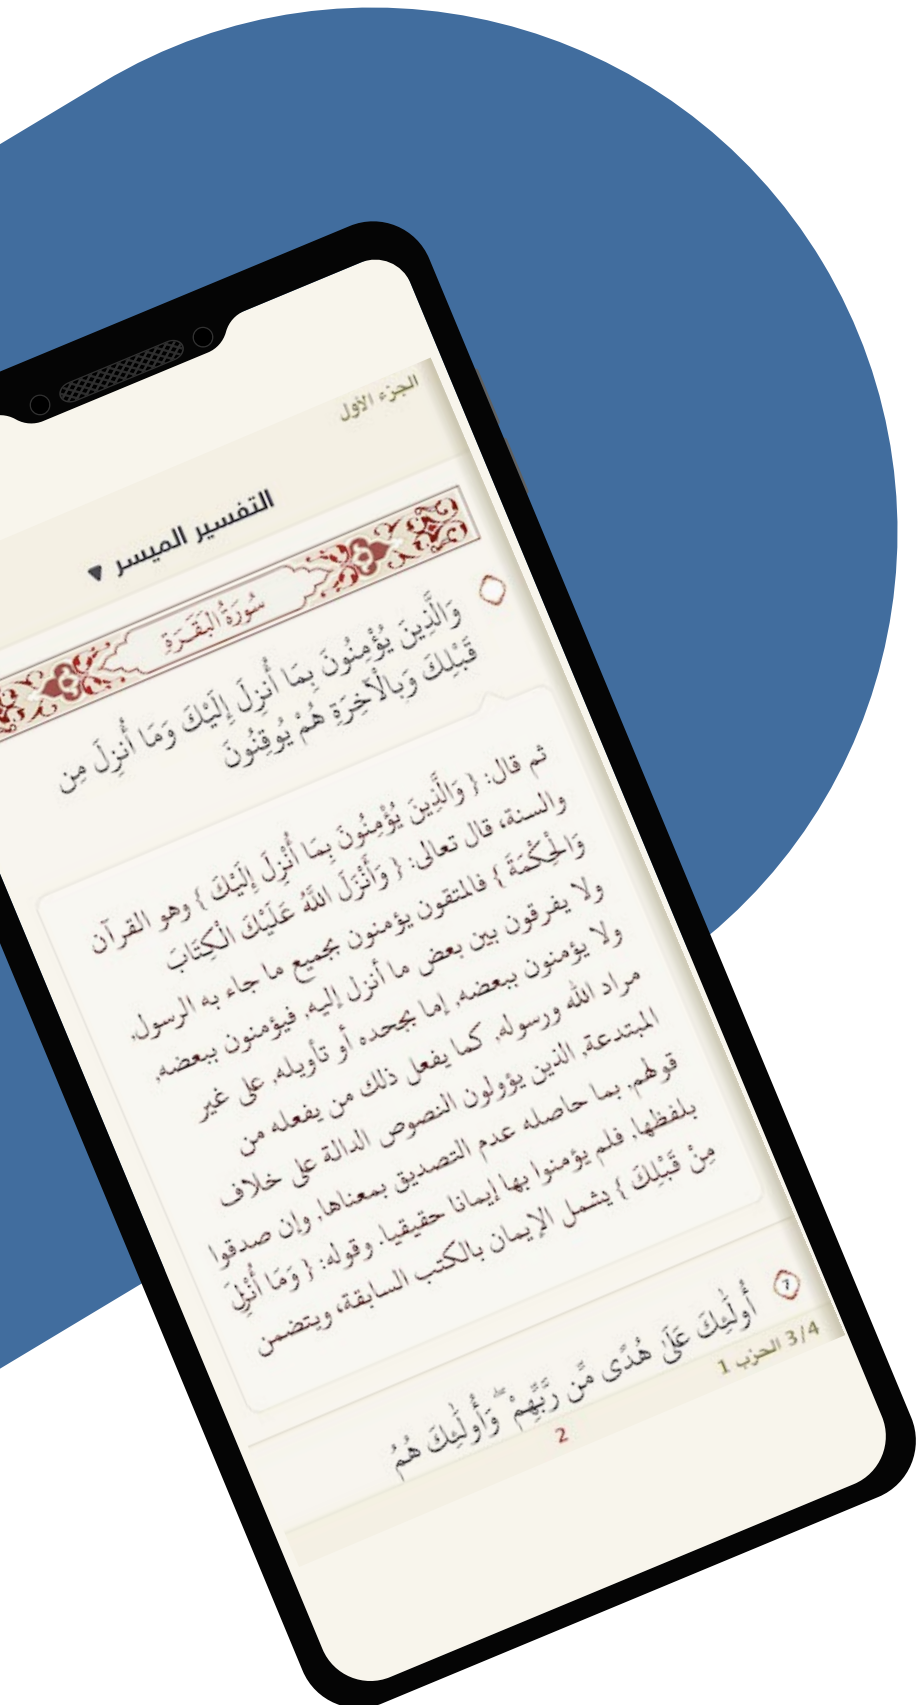 الجزء الأول
التفسير الميسر ▼
سُورَةُ البَقَرَةِ
وَالَّذِينَ يُؤْمِنُونَ بِمَا أُنزِلَ إِلَيْكَ وَمَا أُنزِلَ مِن
قَبْلِكَ وَبِالْآخِرَةِ هُمْ يُوقِنُونَ
ثم قال: { وَالَّذِينَ يُؤْمِنُونَ بِمَا أُنْزِلَ إِلَيْكَ } وهو القرآن
والسنة، قال تعالى: { وَأَنْزَلَ اللَّهُ عَلَيْكَ الْكِتَابَ
وَالْحِكْمَةَ } فالمتقون يؤمنون بجميع ما جاء به الرسول,
ولا يفرقون بين بعض ما أنزل إليه, فيؤمنون ببعضه,
ولا يؤمنون ببعضه, إما بجحده أو تأويله, على غير
مراد الله ورسوله, كما يفعل ذلك من يفعله من
المبتدعة, الذين يؤولون النصوص الدالة على خلاف
قولهم, بما حاصله عدم التصديق بمعناها, وإن صدقوا
بلفظها, فلم يؤمنوا بها إيمانا حقيقيا. وقوله: { وَمَا أُنْزِلَ
مِنْ قَبْلِكَ } يشمل الإيمان بالكتب السابقة، ويتضمن
أُولَٰئِكَ عَلَىٰ هُدًى مِّن رَّبِّهِمْ ۖ وَأُولَٰئِكَ هُمُ
3/4 الحزب 1
2